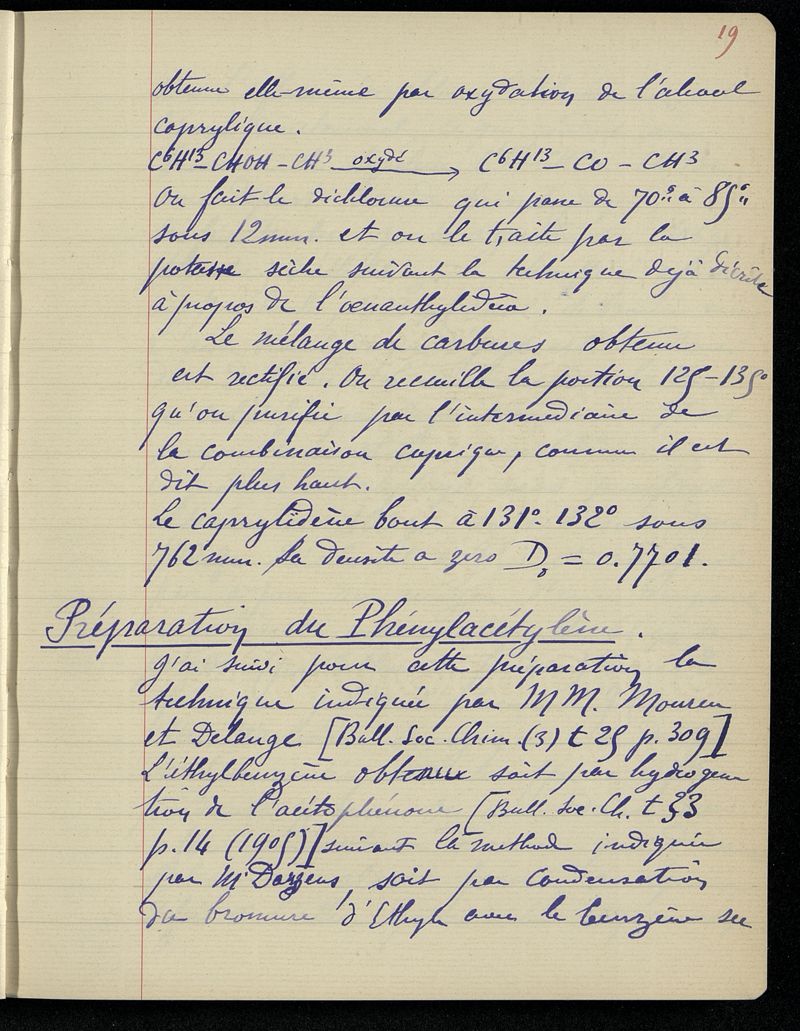 19
obtenue elle-même par oxydation de l'alcool
caprylique.
C⁶H¹³-CHOH-CH³ oxydé → C⁶H¹³-CO-CH³
On fait le dichlorure qui passe de 70° à 85°
sous 12mm. et on le traite par la
potasse sèche suivant la technique dejà décrite
à propos de l'œnanthylidène.
Le mélange de carbures obtenu
est rectifié. On recueille la portion 125-135°
qu'on purifie par l'intermediaire de
la combinaison cuprique, comme il est
dit plus haut.
Le caprylidène bout à 131°-132° sous
762mm. Sa densité a zero D₀ = 0.7701.
Préparation du Phénylacétylène.
J'ai suivi pour cette préparation la
technique indiquée par MM. Moureu
et Delange [Bull. Soc. Chim. (3) t 25 p. 309]
L'éthylbenzène obtenue soit par hydrogena
tion de l'acétophénone [Bull. Soc. Ch. t 33
p. 14 (1905)] suivant la methode indiquée
par Mr Darzens, soit par condensation
du bromure d'Ethyle avec le benzène se